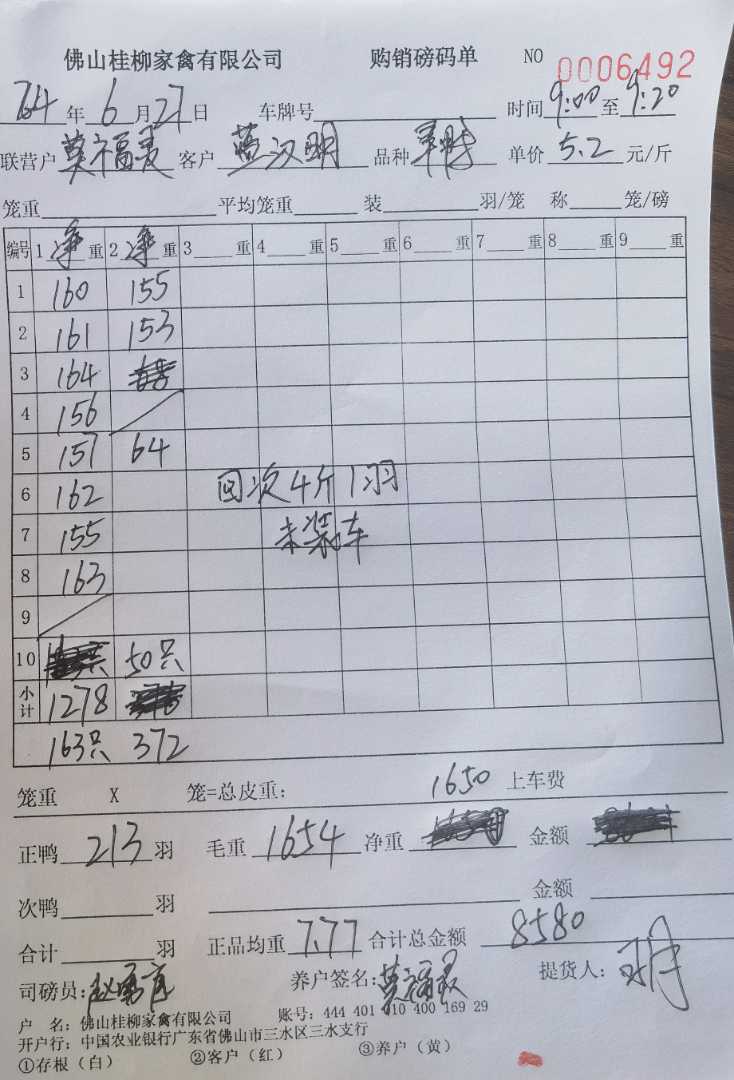 佛山桂柳家禽有限公司 购销磅码单 NO 0006492
年 6 月 27 日 车牌号 时间 9:00 至 9:20
联营户 莫福灵 客户 蓝汉明 品种 单价 5.2 元/斤
笼重 平均笼重 装 羽/笼 称 笼/磅
编号 1 净 重 2 净 重 3 重 4 重 5 重 6 重 7 重 8 重 9 重
1 160 155
2 161 153
3 164
4 156
5 157 64
6 162 回次4斤1羽
7 155 未装车
8 163
9
10 50只
小计 1278
163只 372
笼重 X 笼=总皮重: 1650 上车费
正鸭 213 羽 毛重 1654 净重 金额
次鸭 羽 金额
合计 羽 正品均重 7.77 合计总金额 8580
司磅员: 养户签名: 莫福灵 提货人: 明
户 名: 佛山桂柳家禽有限公司 账号: 444 401 010 400 169 29
开户行: 中国农业银行广东省佛山市三水区三水支行
①存根(白) ②客户(红) ③养户(黄)